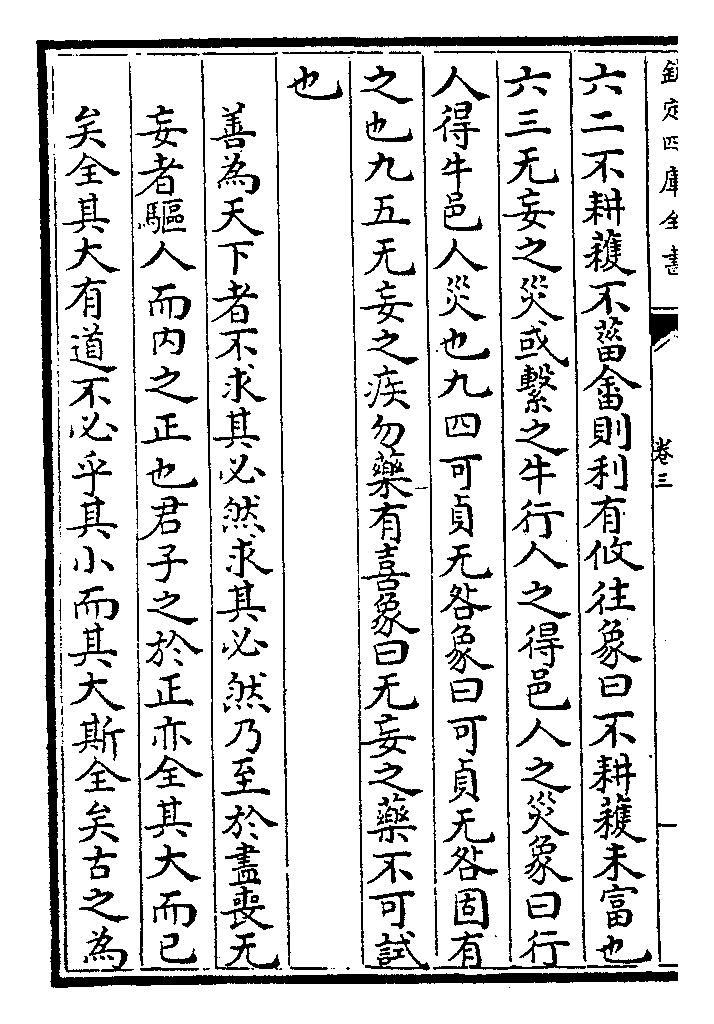 欽定四庫全書
卷三
六二不耕䕶不菑畬則利有攸往象曰不耕䕶未富也
六三无妄之災或繫之牛行人之得邑人之災象曰行
人得牛邑人災也九四可貞无咎象曰可貞无咎固有
之也九五无妄之疾勿藥有喜象曰无妄之藥不可試
也
善為天下者不求其必然求其必然乃至於盡喪无
妄者驅人而内之正也君子之於正亦全其大而已
矣全其大有道不必乎其小而其大斯全矣古之為